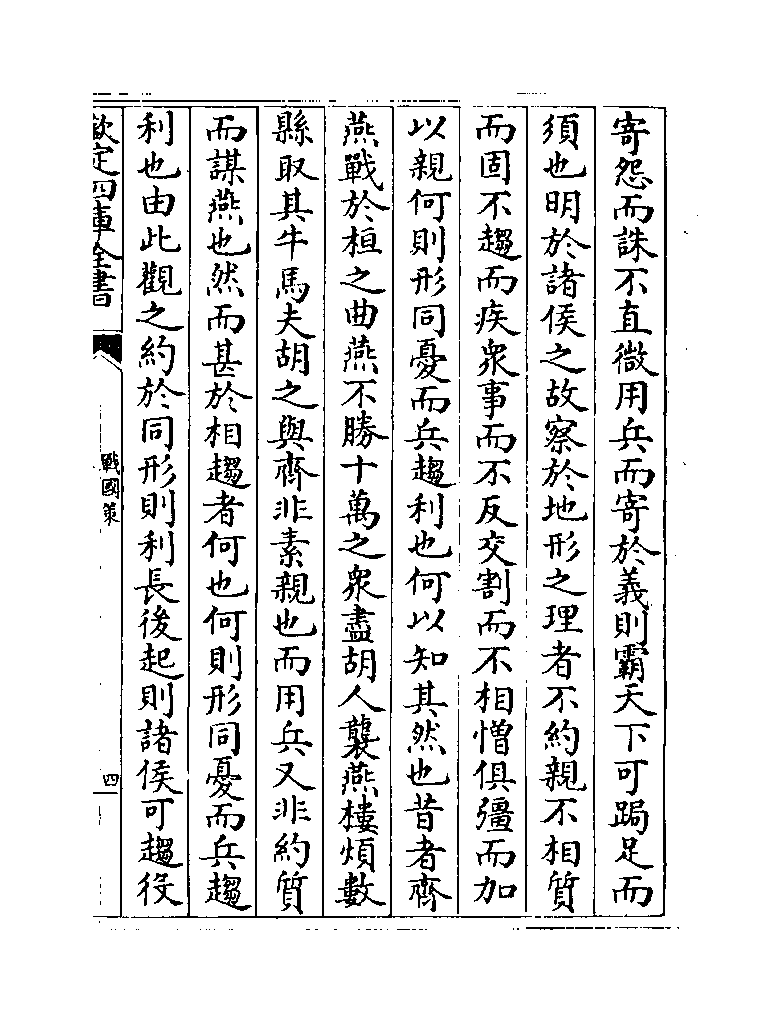 寄怨而誅不直微用兵而寄於義則霸天下可跼足而
須也明於諸侯之故察於地形之理者不約親不相質
而固不趨而疾衆事而不反交割而不相憎俱彊而加
以親何則形同憂而兵趨利也何以知其然也昔者齊
燕戰於桓之曲燕不勝十萬之衆盡胡人襲燕樓煩數
縣取其牛馬夫胡之與齊非素親也而用兵又非約質
而謀燕也然而甚於相趨者何也何則形同憂而兵趨
利也由此觀之約於同形則利長後起則諸侯可趨役
欽定四庫全書
戰國策
四